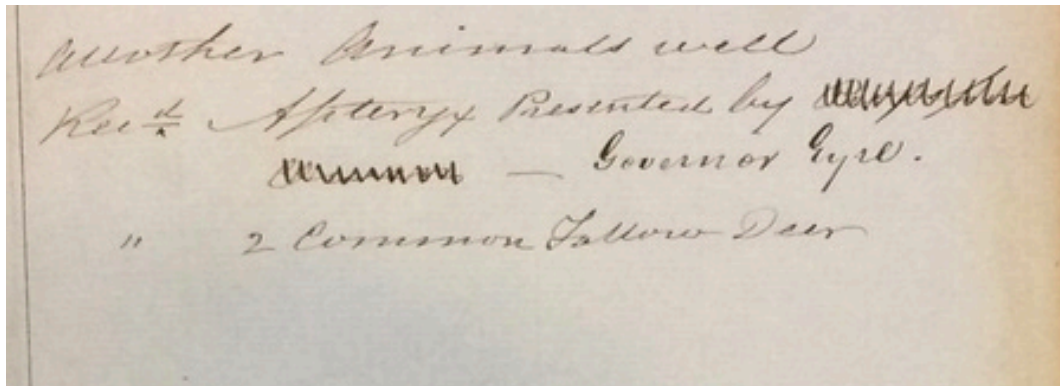 another Animals well
Rec.d Apteryx Presented by
— Governor Eyre.
" 2 Common Fallow Deer